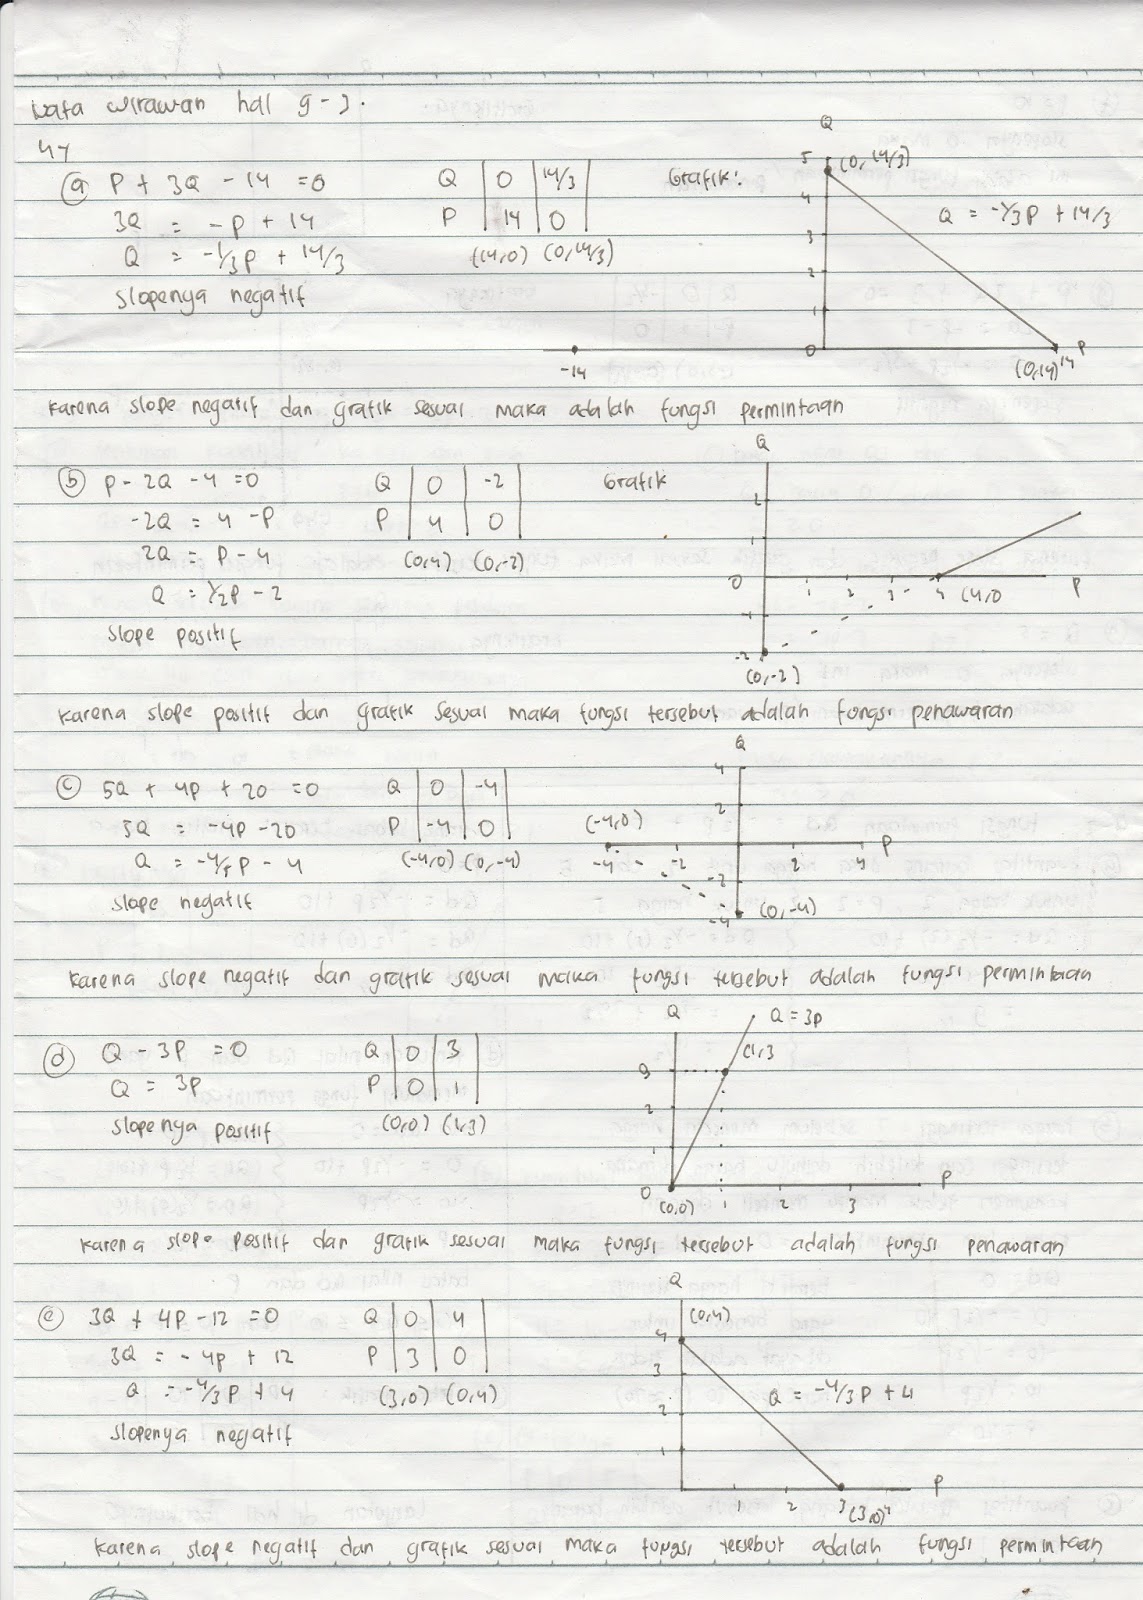 Nata Wirawan hal 9-3.
4y
(a) P + 3Q - 14 = 0
3Q = -P + 14
Q = -1/3P + 14/3
slopenya negatif
Q | 0 | 14/3 |
P | 14 | 0 |
(14,0) (0,14/3)
Grafik:
Q
5 (0,14/3)
4
3
2
1
0
Q = -1/3P + 14/3
-14
(0,14) 14 P
karena slope negatif dan grafik sesuai maka adalah fungsi permintaan
(b) P - 2Q - 4 = 0
-2Q = 4 - P
2Q = P - 4
Q = 1/2P - 2
slope positif
Q | 0 | -2 |
P | 4 | 0 |
(0,4) (0,-2)
Grafik
Q
2
1
0 1 2 3 4 (4,0 P
-1
-2
(0,-2)
karena slope positif dan grafik sesuai maka fungsi tersebut adalah fungsi penawaran
(c) 5Q + 4P + 20 = 0
5Q = -4P - 20
Q = -4/5P - 4
slope negatif
Q | 0 | -4 |
P | -4 | 0 |
(-4,0) (0,-4)
Q
4
2
(-4,0)
-4 -2 2 4 P
-2
-4 (0,-4)
karena slope negatif dan grafik sesuai maka fungsi tersebut adalah fungsi permintaan
(d) Q - 3P = 0
Q = 3P
slopenya positif
Q | 0 | 3 |
P | 0 | 1 |
(0,0) (1,3)
Q Q = 3P
(1,3
3
2
1
0 (0,0) 1 2 3 P
karena slope positif dan grafik sesuai maka fungsi tersebut adalah fungsi penawaran
(e) 3Q + 4P - 12 = 0
3Q = -4P + 12
Q = -4/3P + 4
slopenya negatif
Q | 0 | 4 |
P | 3 | 0 |
(3,0) (0,4)
Q
(0,4)
4
3
2
1
Q = -4/3P + 4
1 2 3 (3,0) 4 P
karena slope negatif dan grafik sesuai maka fungsi tersebut adalah fungsi permintaan